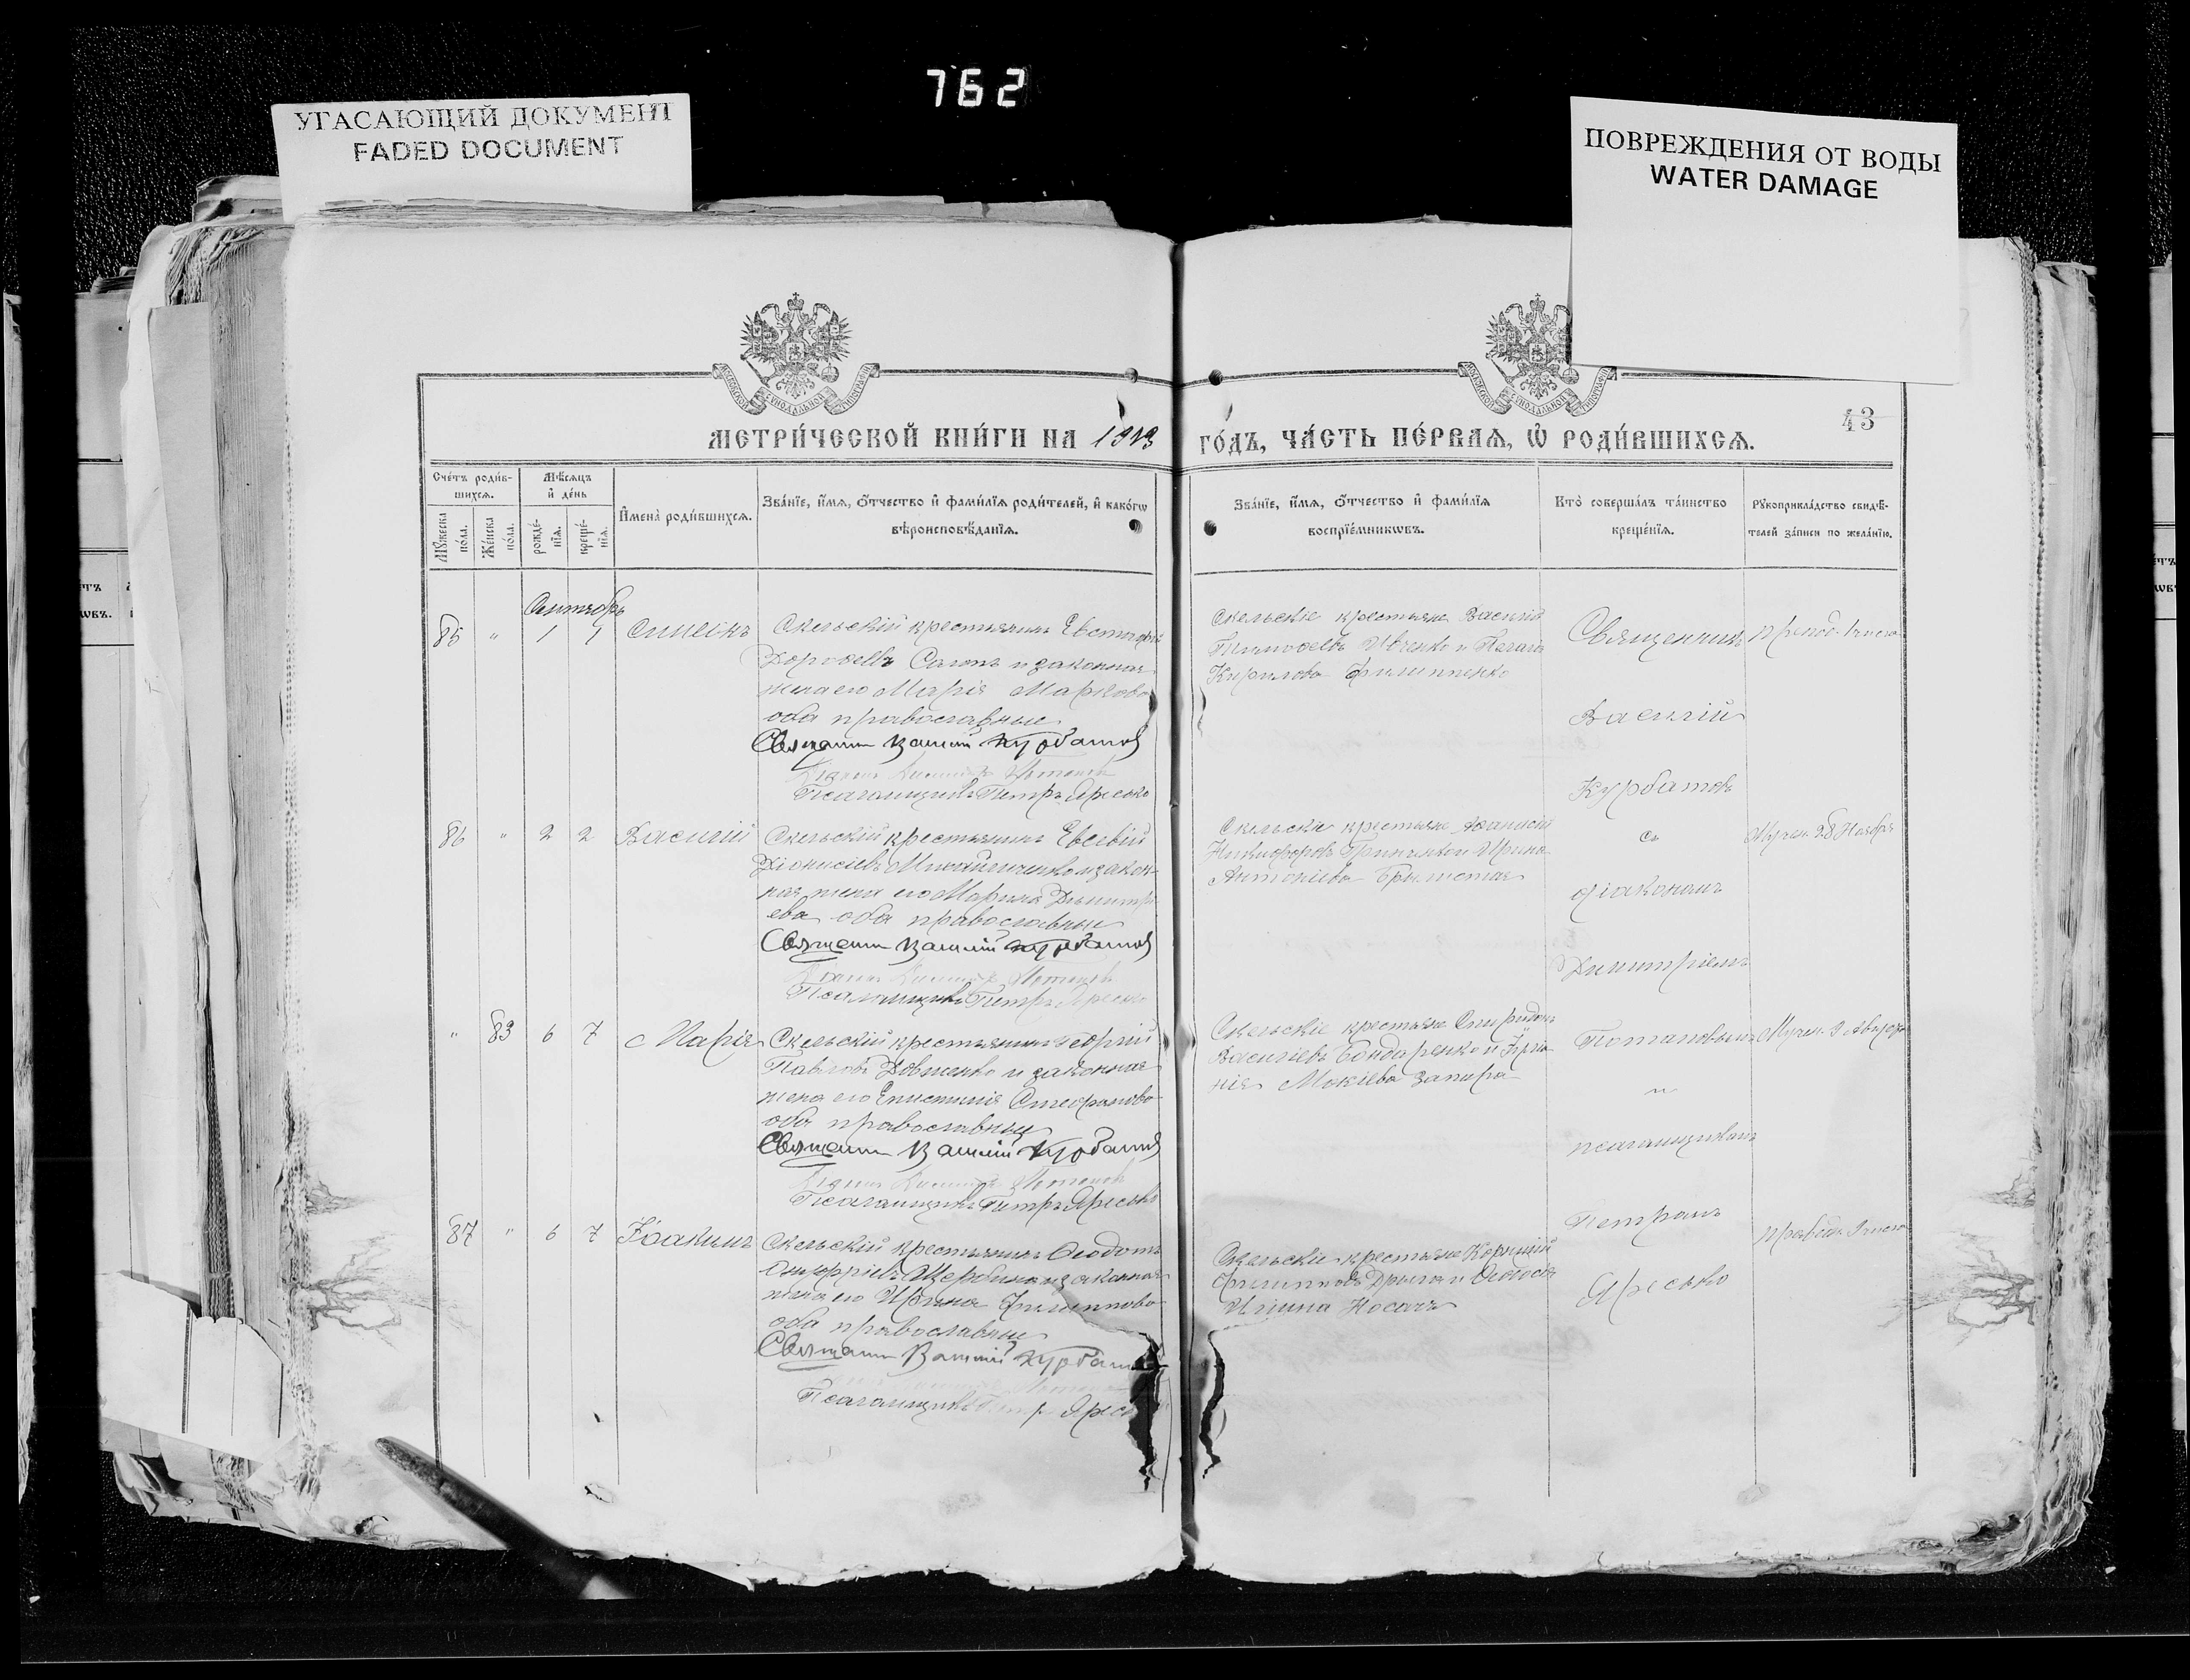 762
УГАСАЮЩИЙ ДОКУМЕНТ
FADED DOCUMENT
ПОВРЕЖДЕНИЯ ОТ ВОДЫ
WATER DAMAGE
43
МЕТРИ́ЧЕСКОЙ КНИ́ГИ НА 1913 ГО́ДЪ, ЧА́СТЬ ПЕ́РВАѦ, Ѡ҆ РОДИ́ВШИХСѦ.
Сче́тъ роди́вшихсѧ.
Мѣ́сяцъ и҆ де́нь
Мꙋ́жеска по́ла.
Же́нска по́ла.
рожде́нїѧ.
креще́нїѧ.
И҆мена̀ роди́вшихсѧ.
Зва́нїе, и҆́мѧ, ѻ҆́тчество и҆ фами́лїѧ роди́телей, и҆ како́гѡ
вѣроисповѣ́данїѧ.
Зва́нїе, и҆́мѧ, ѻ҆́тчество и҆ фами́лїѧ
воспрїе́мникѡвъ.
Кто̀ соверша́лъ та́инство
креще́нїѧ.
Рꙋкоприкла́дство свидѣ́-
телей за́писи по жела́нїю.
Сентябрь
85 " 1 1 Симеонъ
Скельскій крестьянинъ Евстафій
Дорофеевъ и законная
жена его Марія Маркова
оба православные
Священн Василій Курбатовъ
Псаломщикъ Петръ Яресько
Скельскіе крестьяне Василій
Тимофеевъ Ивченко и Пелагія
Кирилова Филиппенко
Священникъ
Василій
Курбатовъ
съ
діакономъ
Димитріемъ
Потаповымъ
и
псаломщикомъ
Петромъ
Яресько
86 " 2 2 Василій
Скельскій крестьянинъ Евсевій
Діонисіевъ и закон-
ная жена его Марина Димитрі
ева оба православные
Священн Василій Курбатовъ
Псаломщикъ Петръ Яресько
Скельскіе крестьяне
Никифоровъ и Ирина
Антоніева
Мучен. 28 Ноября
" 83 6 7 Марія
Скельскій крестьянинъ Георгій
Павловъ Довженко и законная
жена его Епистимія Стефанова
оба православные
Священн Василій Курбатовъ
Псаломщикъ Петръ Яресько
Скельскіе крестьяне Спиридонъ
Василіевъ Бондаренко и
Мокіева
87 " 6 7 Іоакимъ
Скельскій крестьянинъ Ѳеодотъ
Онуфріевъ Щербина и законная
жена его Ирина Филиппова
оба православные
Священн Василій Курбатовъ
Псаломщикъ Петр Яресь
Скельскіе крестьяне Корнилій
Филипповъ и Ѳеодосія
Ильина Носачъ